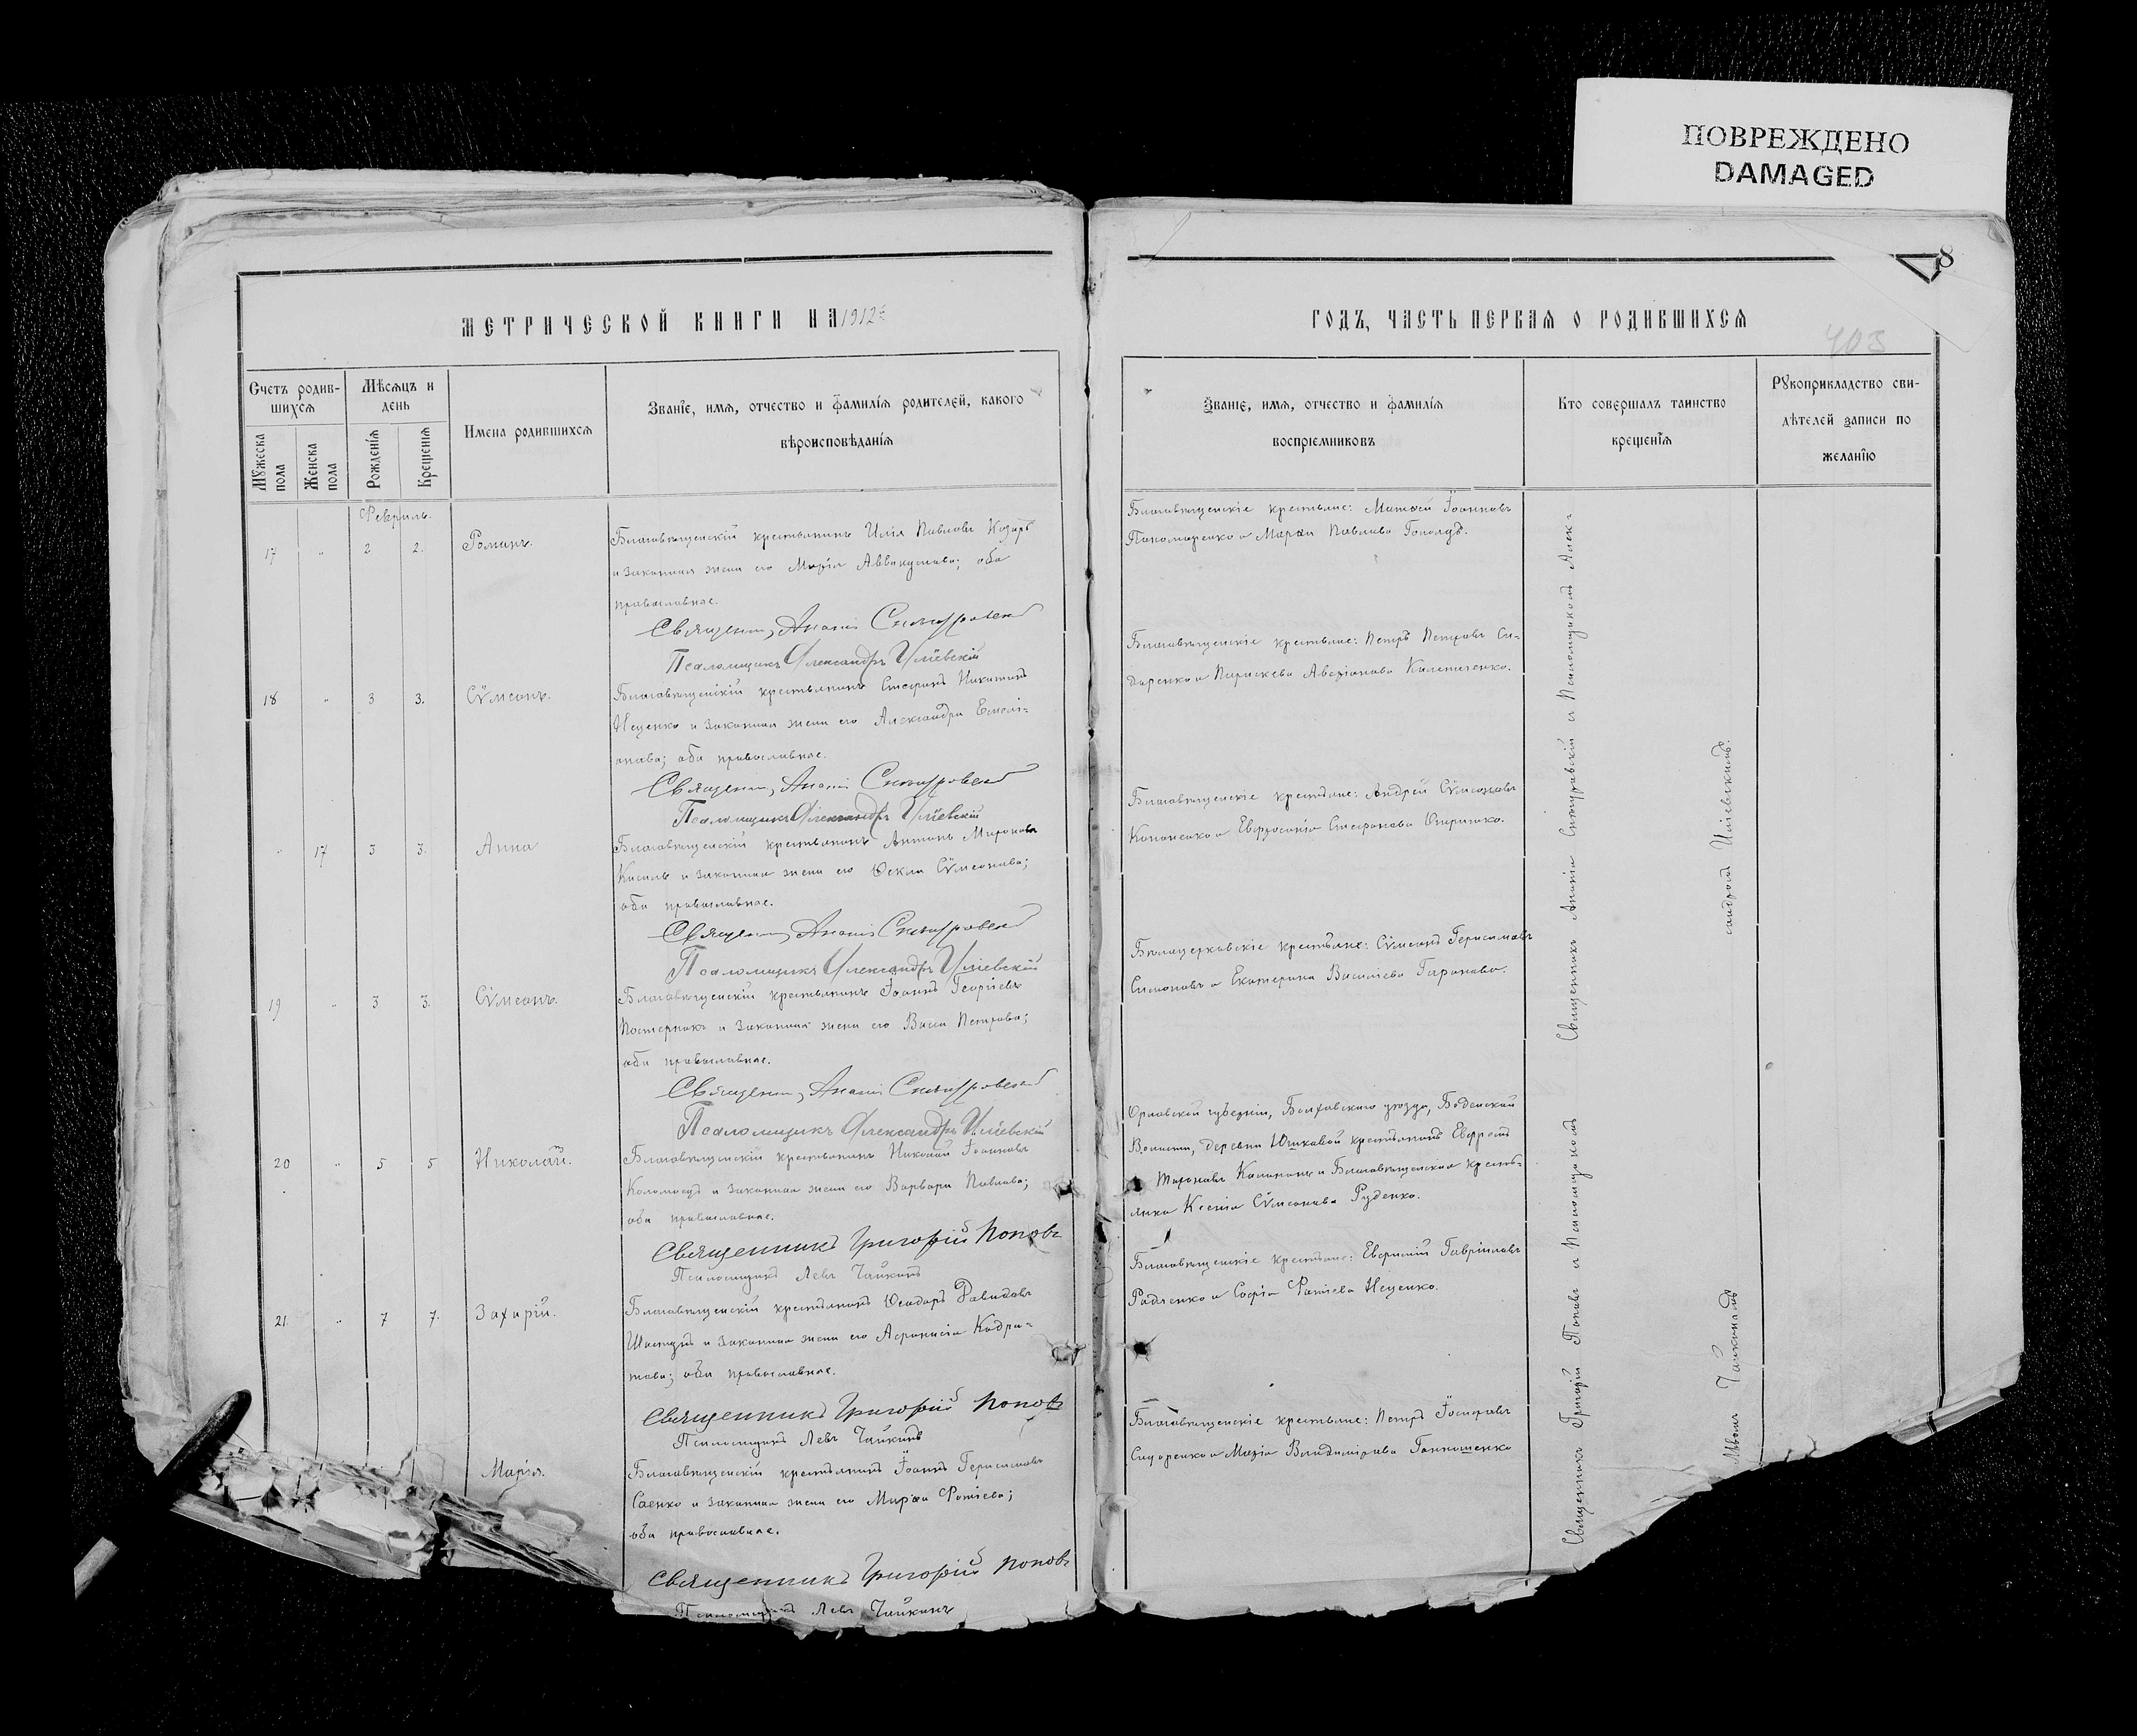 ПОВРЕЖДЕНО
DAMAGED
8
МЕТРИЧЕСКОЙ КНИГИ НА 1912 г.
ГОДЪ, ЧАСТЬ ПЕРВАЯ О РОДИВШИХСЯ
403
Счетъ родив-
шихся
Мѣсяцъ и
день
Мужеска
пола
Женска
пола
Рожденія
Крещенія
Имена родившихся
Званіе, имя, отчество и фамилія родителей, какого
вѣроисповѣданія
Званіе, имя, отчество и фамилія
воспріемниковъ
Кто совершалъ таинство
крещенія
Рукоприкладство сви-
дѣтелей записи по
желанію
Февраль.
17 " 2 2. Романъ.
Благовѣщенскій крестьянинъ Илія Павловъ Козырь
и законная жена его Марія Аввакумова; оба
православные.
Священникъ Ананій
Псаломщикъ Александръ Иліевскій
Благовѣщенскіе крестьяне: Матѳей Іоанновъ
Пономаренко и Марѳа Павлова
18 " 3 3. Сѵмеонъ.
Благовѣщенскій крестьянинъ Стефанъ Никитинъ
Неценко и законная жена его Александра Емелі-
анова; оба православные.
Священникъ Ананій
Псаломщикъ Александръ Иліевскій
Благовѣщенскіе крестьяне: Петръ Петровъ Си-
доренко и Параскева Калениченко.
" 17 3 3. Анна
Благовѣщенскій крестьянинъ Антонъ Мироновъ
Кисиль и законная жена его Ѳекла Сѵмеонова;
оба православные.
Священникъ Ананій
Псаломщикъ Александръ Иліевскій
Благовѣщенскіе крестьяне: Андрей Сѵмеоновъ
Кононенко и Евфросинія Стефанова
19 " 3 3. Сѵмеонъ.
Благовѣщенскій крестьянинъ Іоаннъ Георгіевъ
Постернакъ и законная жена его Васса Петрова;
оба православные.
Священникъ Ананій
Псаломщикъ Александръ Иліевскій
Бѣлоцерковскіе крестьяне: Сѵмеонъ Герасимовъ
Симоновъ и Екатерина Василіева
20 " 5 5 Николай.
Благовѣщенскій крестьянинъ Николай Іоанновъ
Коломоецъ и законная жена его Варвара Павлова;
оба православные.
Священникъ Григорій Поповъ
Псаломщикъ Левъ Чайкинъ
Орловской губерніи, Болховскаго уѣзда,
Волости, деревни крестьянинъ Евфремъ
и Благовѣщенская кресть-
янка Ксенія Сѵмеонова Руденко.
21 " 7 7. Захарій.
Благовѣщенскій крестьянинъ Ѳеодоръ Давидовъ
и законная жена его Аѳанасія Кодра-
това; оба православные.
Священникъ Григорій Поповъ
Псаломщикъ Левъ Чайкинъ
Благовѣщенскіе крестьяне: Гавріиловъ
Радченко и Софія Фотіева Неценко.
Марія.
Благовѣщенскій крестьянинъ Іоаннъ Герасимовъ
Саенко и законная жена его Марѳа Фотіева;
оба православные.
Священникъ Григорій Поповъ
Псаломщикъ Левъ Чайкинъ
Благовѣщенскіе крестьяне: Петръ Іосифовъ
Сидоренко и Марія Владимірова
Священникъ Ананій и Псаломщикомъ Алек-
сандромъ Иліевскимъ.
Священникъ Григорій Поповъ и Псаломщикомъ
Львомъ Чайкинымъ